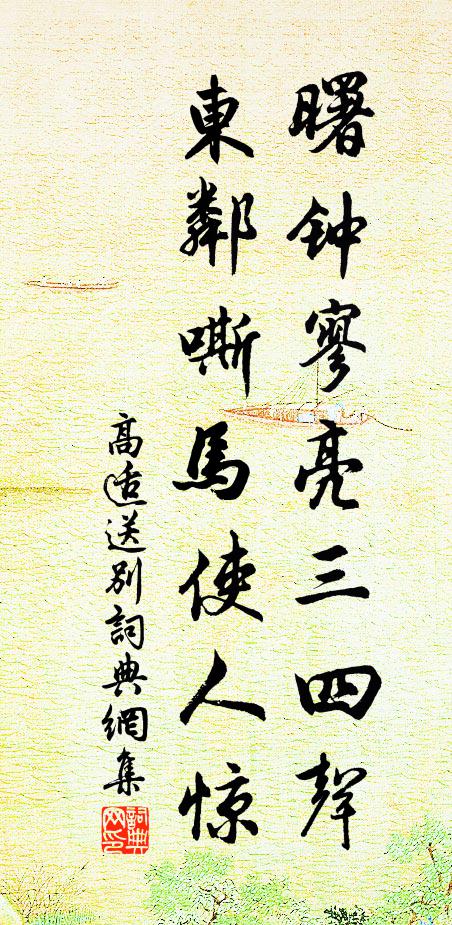 曙钟寥亮三四聲
東鄰嘶馬使人惊
高适送别詞典網集
詞典網印